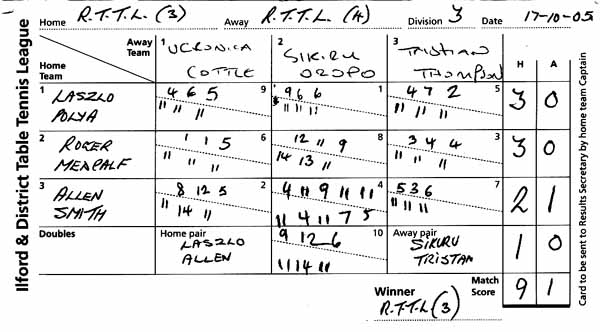 Ilford & District Table Tennis League
Home R.T.T.L. (3) Away R.T.T.L. (4) Division 3 Date 17-10-05
Away Team
Home Team
1 VERONICA COTTLE
2 SIKIRU OROPO
3 TRISTIAN THOMPSON
H A
1 LASZLO POLYA
4 6 5 9
11 11 11
9 6 6 1
11 11 11
4 7 2 5
11 11 11
3 0
2 ROGER METCALF
1 1 5 6
11 11 11
12 11 9 8
14 13 11
3 4 4 3
11 11 11
3 0
3 ALLEN SMITH
8 12 5 2
11 14 11
4 11 9 11 11 4
11 4 11 7 5
5 3 6 7
11 11 11
2 1
Doubles
Home pair
LASZLO
ALLEN
9 12 6 10
11 14 11
Away pair
SIKIRU
TRISTAN
1 0
Winner R.T.T.L (3)
Match Score 9 1
Card to be sent to Results Secretary by home team Captain